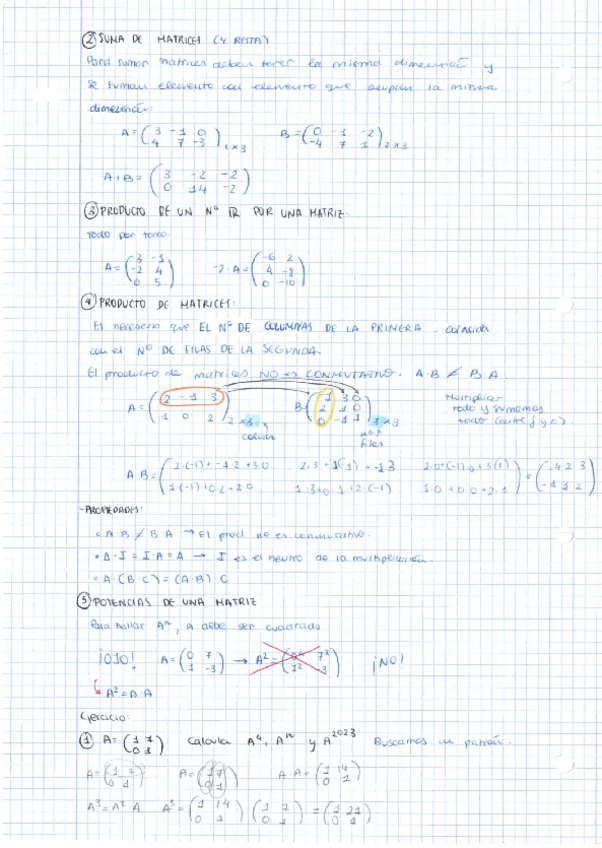 ② SUMA DE MATRICES (Y RESTA)
Para sumar matrices deben tener la misma dimensión y
se suman elemento con elemento que ocupan la misma
dimensión:
A = ( 3 -1 0 / 4 7 -3 ) 2x3   B = ( 0 -1 -2 / -4 7 1 ) 2x3
A+B = ( 3 -2 -2 / 0 14 -2 )
③ PRODUCTO DE UN Nº ℝ POR UNA MATRIZ.
Todo por todo.
A = ( 3 -1 / -2 4 / 0 5 )   -2·A = ( -6 2 / 4 -8 / 0 -10 )
④ PRODUCTO DE MATRICES:
Es necesario que EL Nº DE COLUMNAS DE LA PRIMERA coincida
con el Nº DE FILAS DE LA SEGUNDA.
El producto de matrices NO es CONMUTATIVO. A·B ≠ B·A
A = ( 2 -1 3 / 1 0 2 ) 2x3   B = ( -1 3 0 / 2 1 0 / 0 -1 1 ) 3x3
Multiplicar
todo y sumamos
todo
colum
filas
A·B =
- PROPIEDADES:
A·B ≠ B·A → El prod no es conmutativo.
A·I = I·A = A → I es el neutro de la multiplicación
A·(B·C) = (A·B)·C
⑤ POTENCIAS DE UNA MATRIZ
Para hallar Aⁿ, A debe ser cuadrada
¡OJO!   A = ( 0 7 / 1 -3 ) → A² = ( 0² 7² / 1² -3 )   ¡NO!
A² = A·A
Ejercicio:
① A = ( 1 7 / 0 1 )   Calcula A⁴, Aⁿ y A²⁰²³   Buscamos un patrón.
A = ( 1 7 / 0 1 )   A = ( 1 7 / 0 1 )   A·A = ( 1 14 / 0 1 )
A³ = A²·A   A³ = ( 1 14 / 0 1 ) ( 1 7 / 0 1 ) = ( 1 21 / 0 1 )